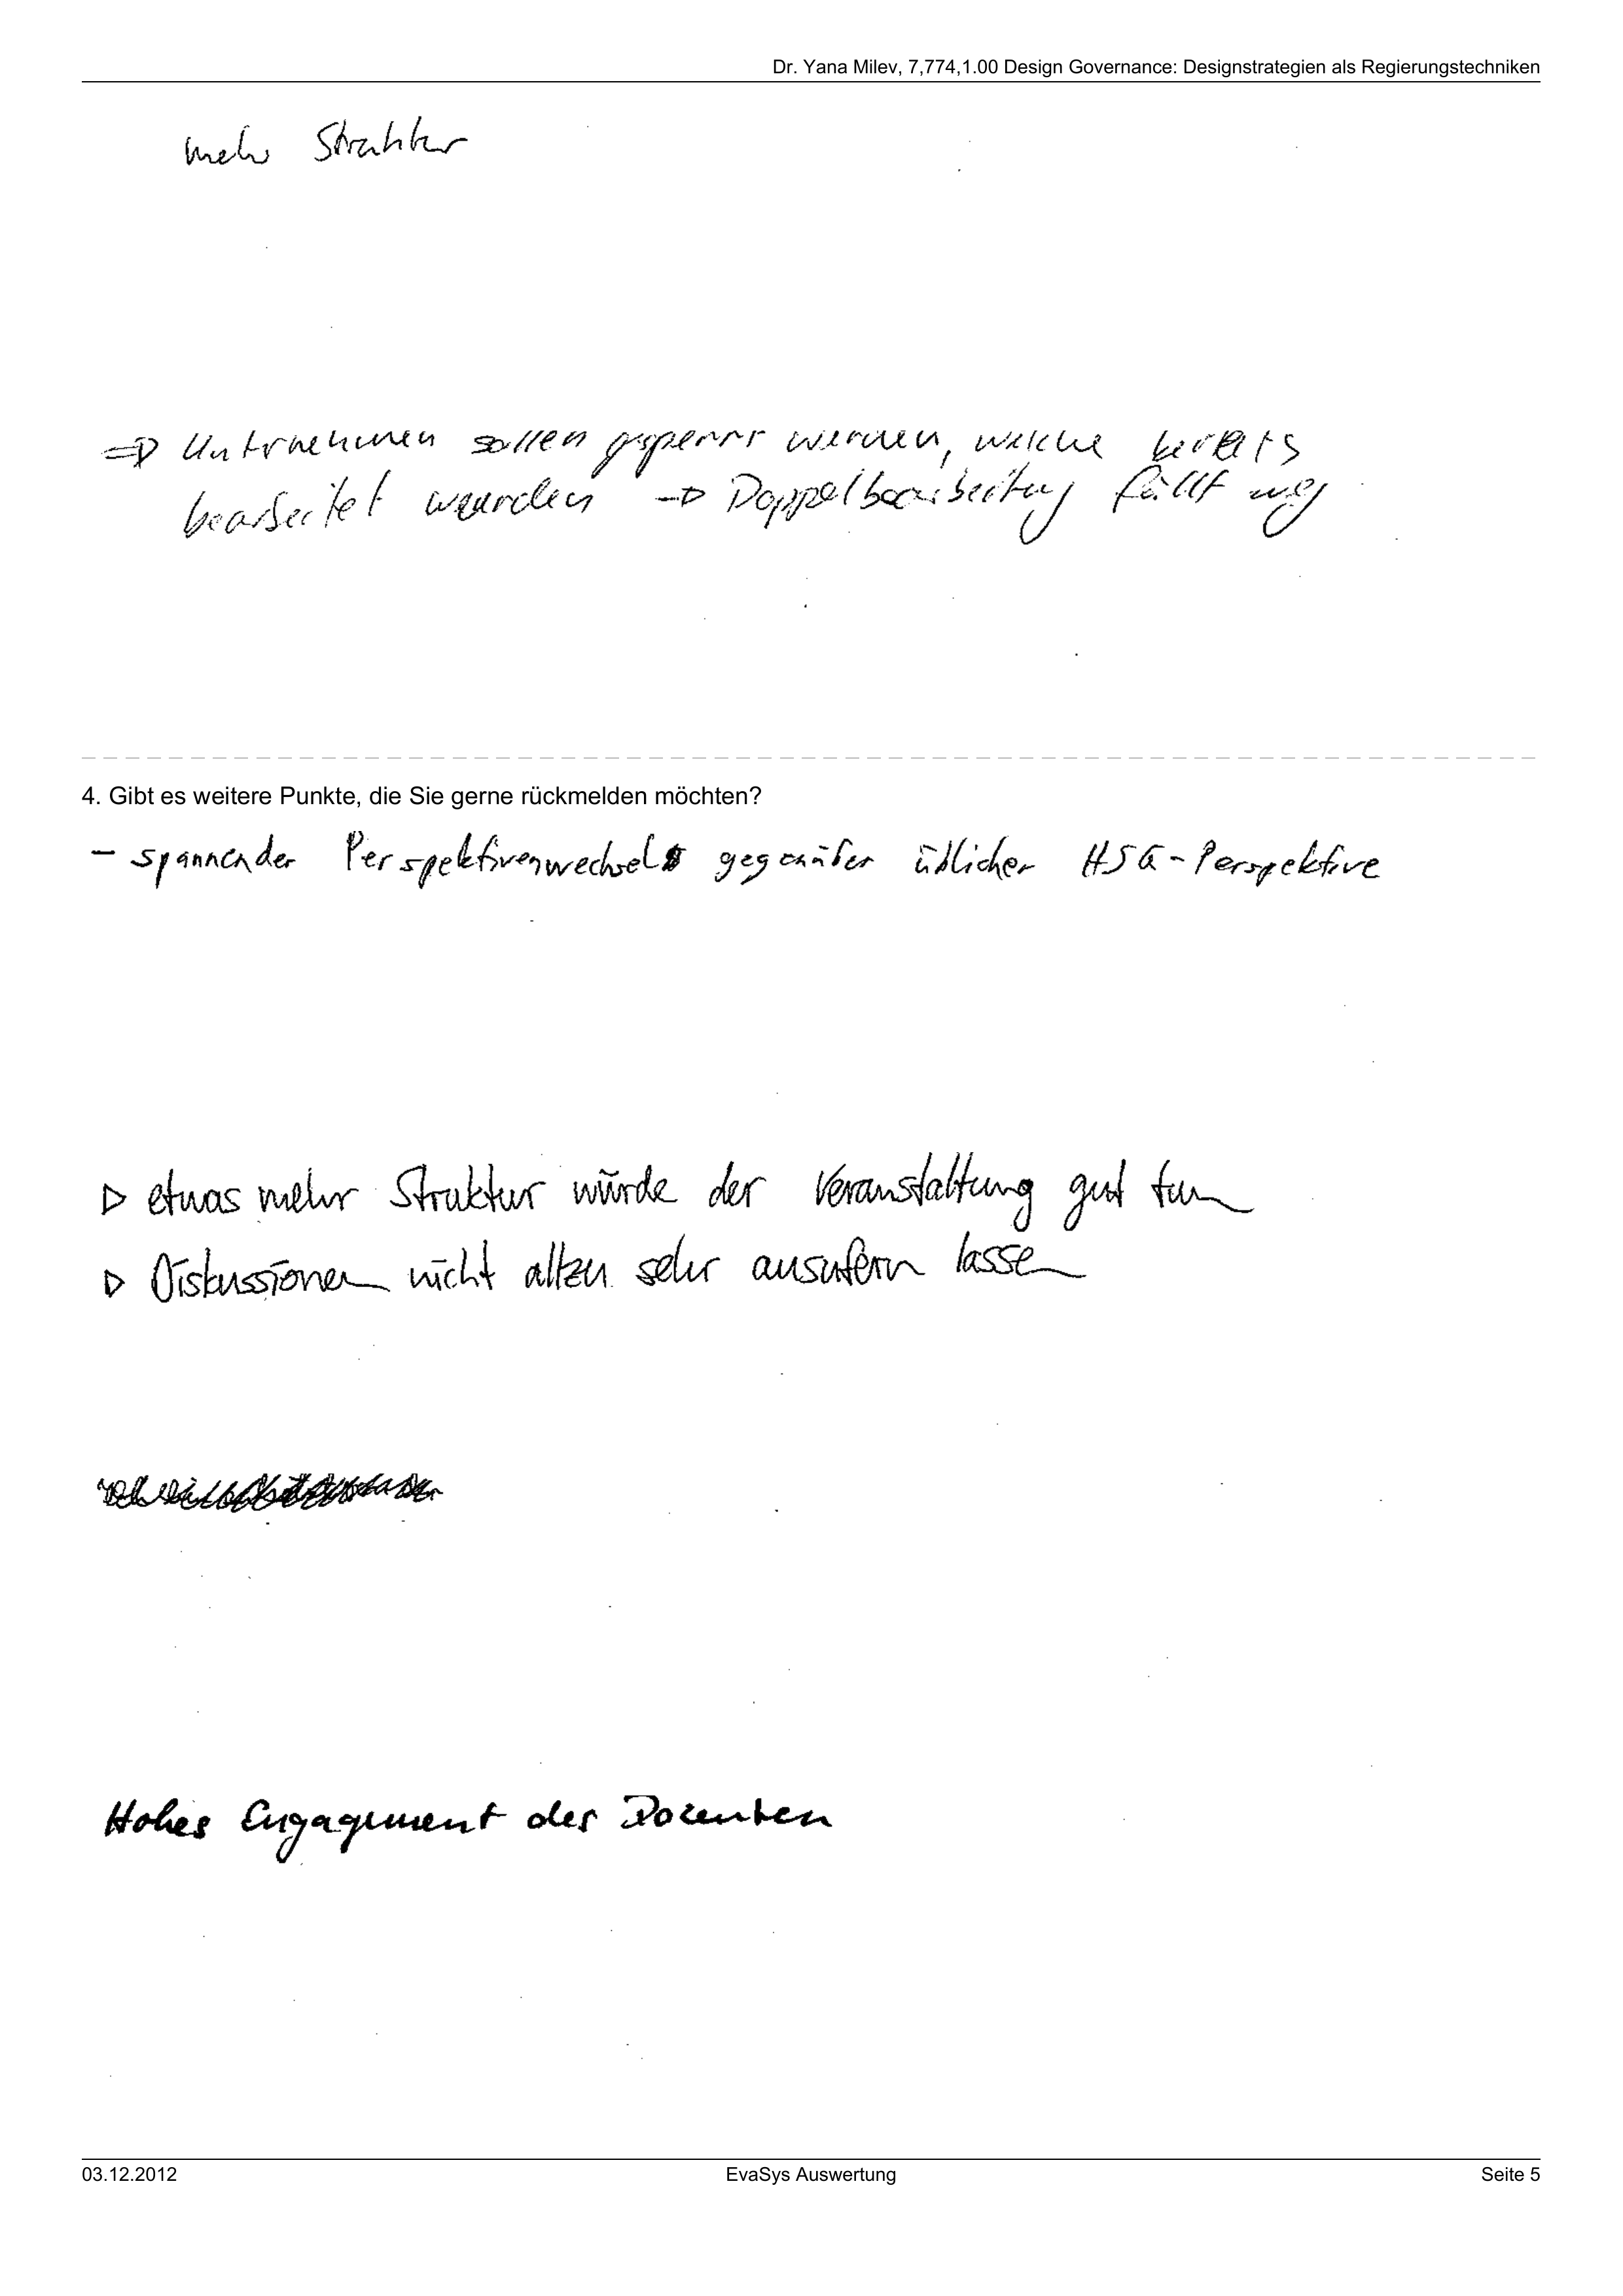 Dr. Yana Milev, 7,774,1.00 Design Governance: Designstrategien als Regierungstechniken
mehr Struktur
⇒ Unternehmen sollen gesperrt werden, welche bereits
bearbeitet wurden → Doppelbearbeitung fällt weg
4. Gibt es weitere Punkte, die Sie gerne rückmelden möchten?
- spannender Perspektivenwechsel gegenüber üblicher HSG-Perspektive
▷ etwas mehr Struktur würde der Veranstaltung gut tun
▷ Diskussionen nicht allzu sehr ausufern lassen
Hohes Engagement des Dozenten
03.12.2012 EvaSys Auswertung Seite 5